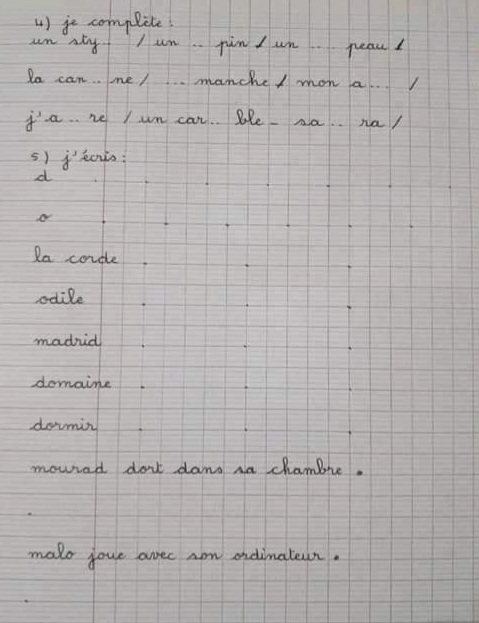 4) je complète :
un sty.. / un .. pin / un .... peau /
la can.. ne / ... manche / mon a... /
j'a .. re / un car.. ble - sa .. ra /
5) j'écris :
d . . . . . .
o . . . . . .
la corde . . .
odile . . .
madrid . . .
domaine . . .
dormir . . .
mourad dort dans sa chambre .
.
malo joue avec son ordinateur .
.